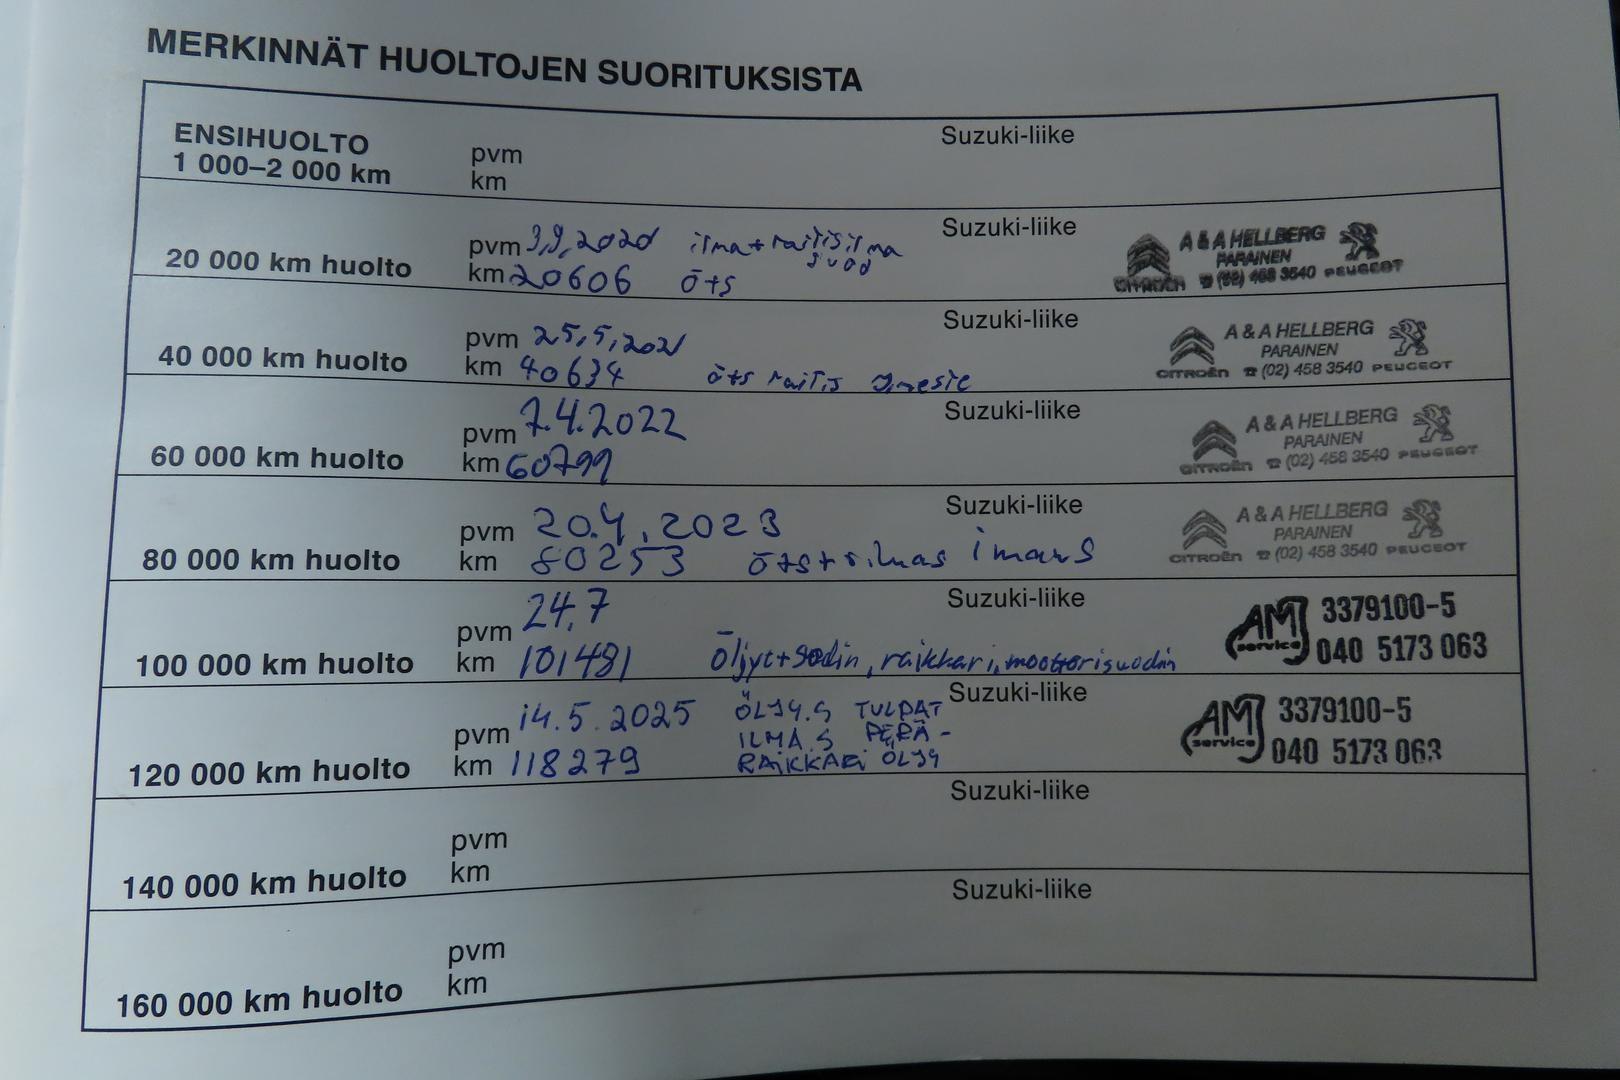 MERKINNÄT HUOLTOJEN SUORITUKSISTA
ENSIHUOLTO
1 000–2 000 km
pvm
km
Suzuki-liike
20 000 km huolto
pvm 3,9,2020 ilma+raitisilma
suod
km 20606 öts
Suzuki-liike
A & A HELLBERG
PARAINEN
CITROËN ☎ (02) 458 3540 PEUGEOT
40 000 km huolto
pvm 25,5,2021
km 40634 öts raitis
Suzuki-liike
A & A HELLBERG
PARAINEN
CITROËN ☎ (02) 458 3540 PEUGEOT
60 000 km huolto
pvm 7.4.2022
km 60799
Suzuki-liike
A & A HELLBERG
PARAINEN
CITROËN ☎ (02) 458 3540 PEUGEOT
80 000 km huolto
pvm 20.4.2023
km 80253 öts+ilmas
Suzuki-liike
A & A HELLBERG
PARAINEN
CITROËN ☎ (02) 458 3540 PEUGEOT
100 000 km huolto
pvm 24,7
km 101481 Öljyt+sodin, raikkari, moottorisuodin
Suzuki-liike
AM service
3379100-5
040 5173 063
120 000 km huolto
pvm 14.5.2025
km 118279
ÖLJY.S TULPAT
ILMA.S PERÄ-
RAIKKARI ÖLJY
Suzuki-liike
AM service
3379100-5
040 5173 063
140 000 km huolto
pvm
km
Suzuki-liike
160 000 km huolto
pvm
km
Suzuki-liike